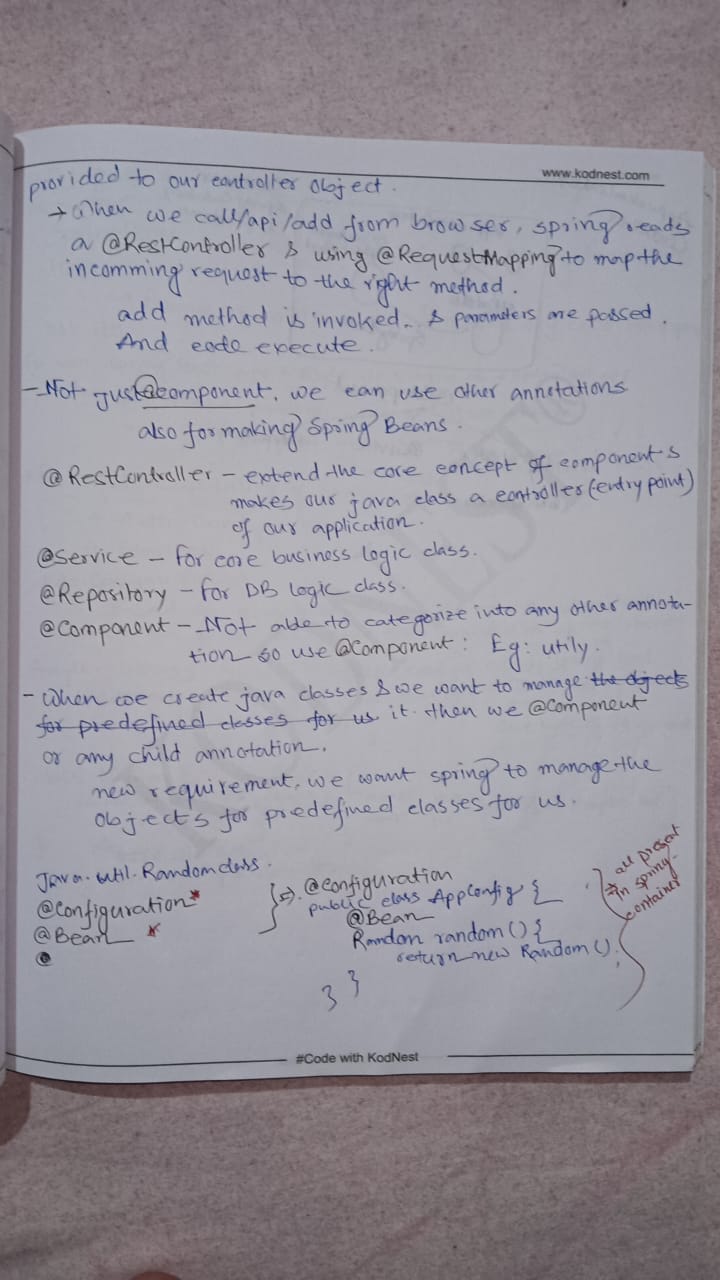 www.kodnest.com
provided to our controller object.
→ When we call /api/add from browser, spring reads
a @RestController & using @RequestMapping to map the
incomming request to the right method.
add method is invoked. & parameters are passed.
And code execute.
- Not just @component, we can use other annotations
also for making Spring Beans.
@RestController - extend the core concept of component &
makes our java class a controller (entry point)
of our application.
@Service - for core business logic class.
@Repository - for DB logic class.
@Component - Not able to categorize into any other annota-
tion so use @Component : Eg: utily.
- When we create java classes & we want to manage the objects
for predefined classes for us it then we @Component
or any child annotation.
new requirement, we want spring to manage the
objects for predefined classes for us.
Java.util.Random class.
@Configuration*
@Bean *
@
} ⇒ @Configuration
public class AppConfig {
@Bean
Random random() {
return new Random();
} }
all present
in spring
container
#Code with KodNest
KODNEST®